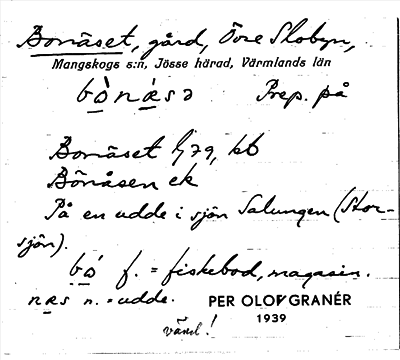 Bonäset, gård, Övre Slobyn,
Mangskogs s:n, Jösse härad, Värmlands län
bònæ̀sə Prep. på
Bonäset Gj 79, kb
Bönåsen ek
På en udde i sjön Salungen (Stor-
sjön).
bó f. = fiskebod, magasin.
næs n. = udde. PER OLOF GRANÉR
1939
vänd!